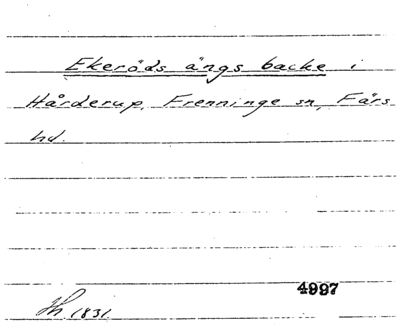 Ekeröds ängs backe i
Hårderup, Frenninge sn, Färs
hd.
4997
Jh 1831.